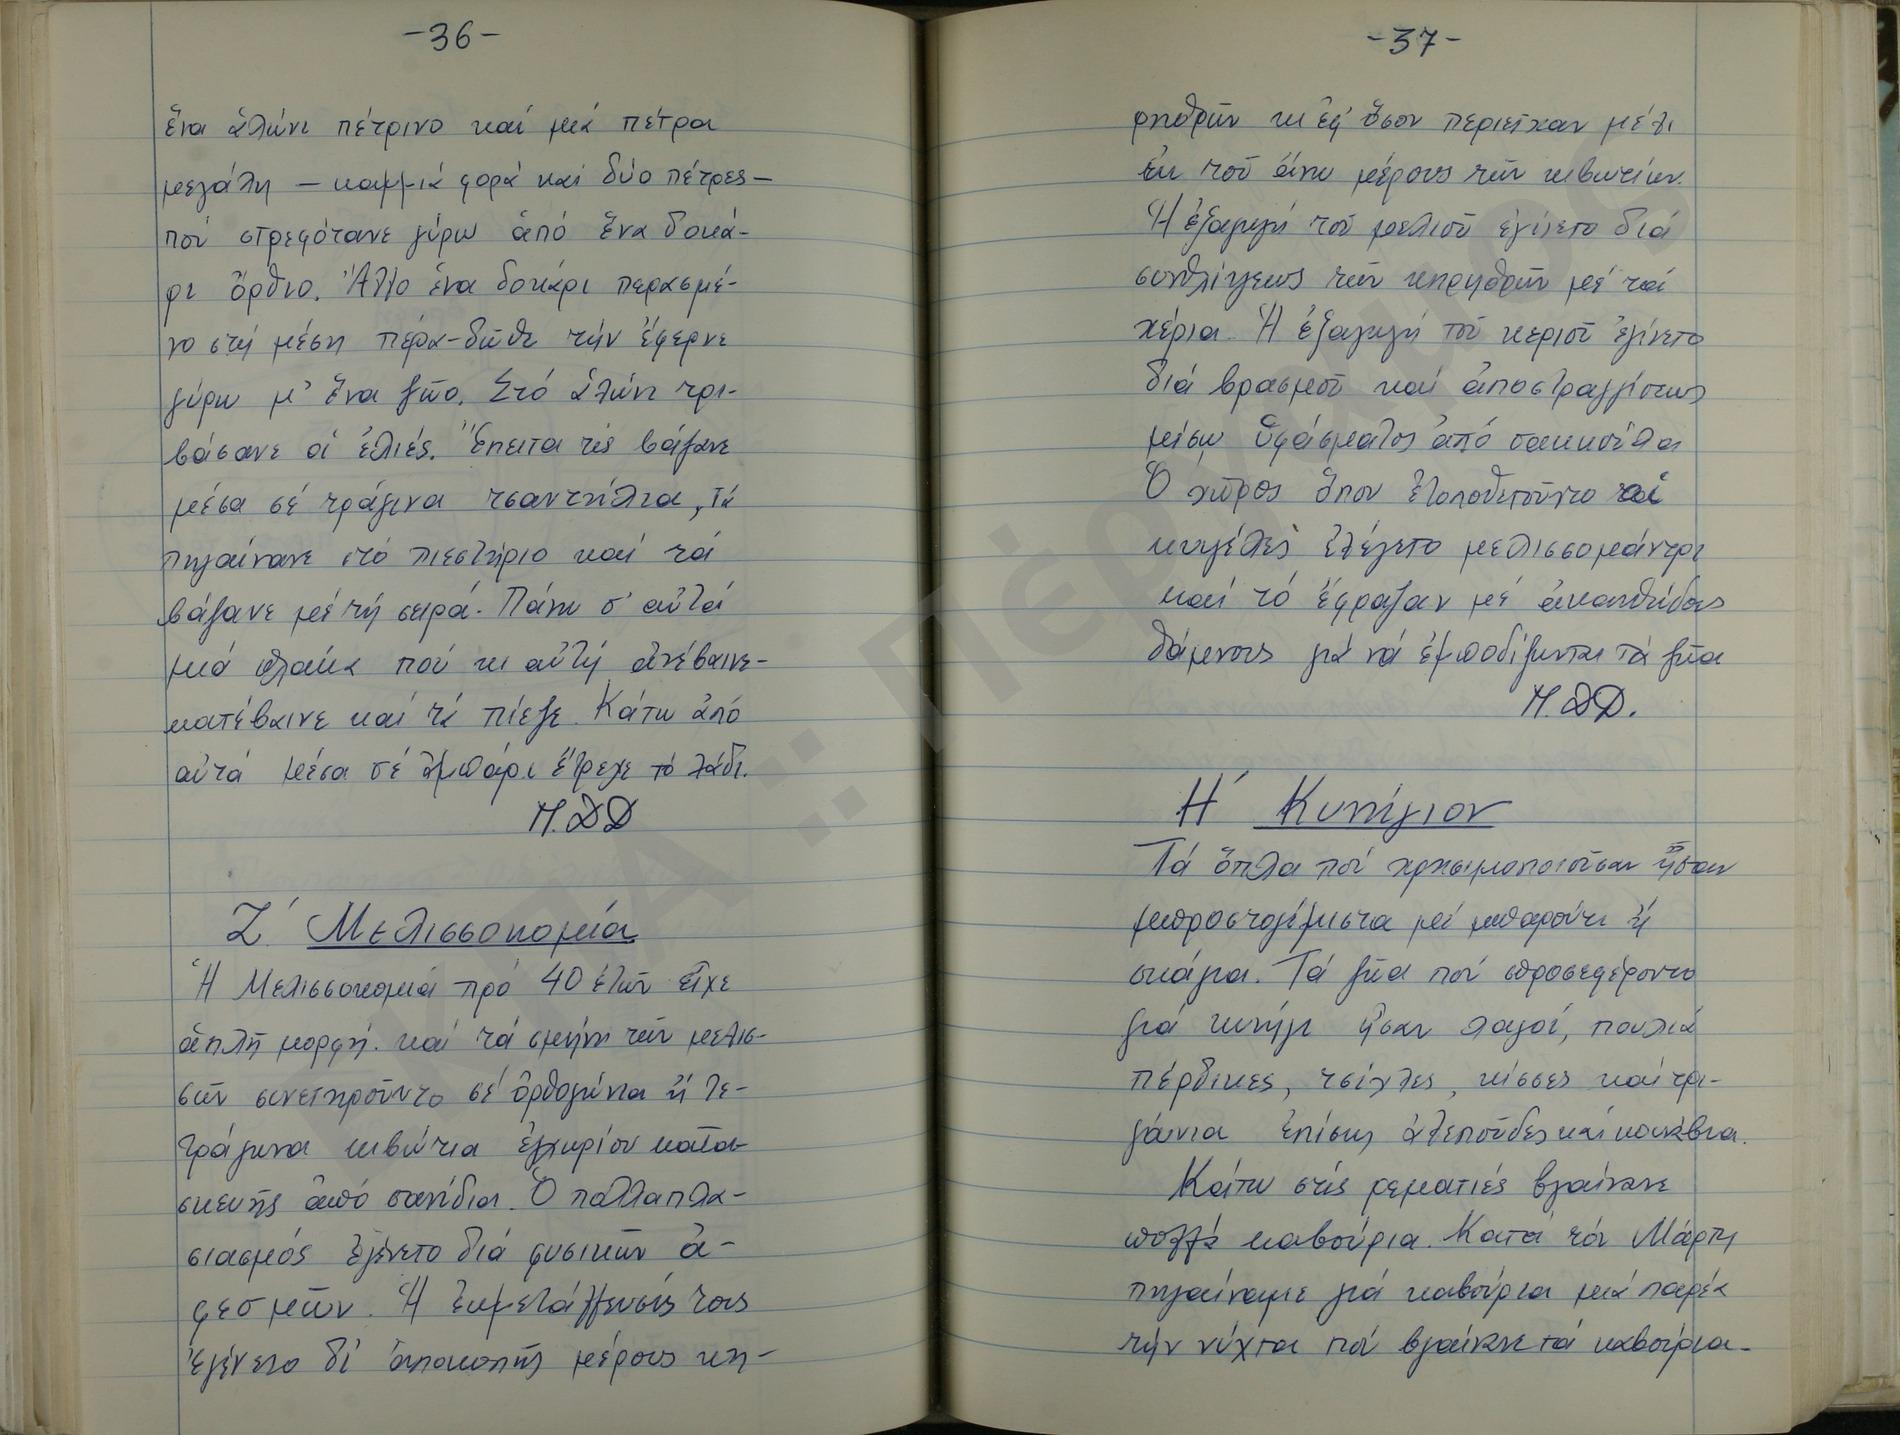 -36-
ἕνα ἁλώνι πέτρινο καί μιά πέτρα
μεγάλη — καμμιά φορά καί δύο πέτρες —
πού στρεφότανε γύρω ἀπό ἕνα δοκά-
ρι ὄρθιο. Ἄλλο ἕνα δοκάρι περασμέ-
νο στή μέση πέρα-δῶθε τήν ἔφερνε
γύρω μ' ἕνα ζῶο. Στό ἁλώνι τρι-
βόσανε οἱ ἐλιές. Ἔπειτα τίς βάζανε
μέσα σέ τράγινα τσαντήλια, τά
πηγαίνανε στό πιεστήριο καί τά
βάζανε μέ τή σειρά. Πάνω σ' αὐτά
μιά πλάκα πού κι αὐτή ἀνέβαινε-
κατέβαινε καί τά πίεζε. Κάτω ἀπό
αὐτά μέσα σέ ἀμπάρι ἔτρεχε τό λάδι.
Μ.ΔΔ
Ζ΄ Μελισσοκομία
Ἡ Μελισσοκομία πρό 40 ἐτῶν εἶχε
ἁπλῆ μορφή. καί τά σμήνη τῶν μελισ-
σῶν συνετηροῦντο σέ ὀρθογώνια ἤ τε-
τράγωνα κιβώτια ἐγχωρίου κατα-
σκευῆς ἀπό σανίδια. Ὁ πολλαπλα-
σιασμός ἐγένετο διά φυσικῶν ἀ-
φεσμῶν. Ἡ ἐκμετάλλευσίς τους
ἐγένετο δι' ἀποκοπῆς μέρους κη-
-37-
ρηθρῶν κι ἐφ' ὅσον περιεῖχαν μέλι
ἐκ τοῦ ἄνω μέρους τῶν κιβωτίων.
Ἡ ἐξαγωγή τοῦ μελιοῦ ἐγίνετο διά
συνθλίψεως τῶν κηρηθρῶν μέ τά
χέρια. Ἡ ἐξαγωγή τοῦ κεριοῦ ἐγίνετο
διά βρασμοῦ καί ἀποστραγγίσεως
μέσω ὑφάσματος ἀπό σακκούλα
Ὁ χῶρος ὅπου ἐτοποθετοῦντο αἱ
κυψέλες ἐλέγετο μελισσομάντρι
καί τό ἔφραζαν μέ ἀκανθώδεις
θάμνους γιά νά ἐμποδίζωνται τά ζῶα
Μ.ΔΔ.
Η΄ Κυνήγιον
Τά ὅπλα πού χρησιμοποιοῦσαν ἦσαν
μπροστογέμιστα μέ μπαρούτι ἤ
σκάγια. Τά ζῶα πού προσεφέροντο
γιά κυνήγι ἦσαν λαγοί, πουλιά
πέρδικες, τσίχλες, κίσσες καί τρι-
γόνια ἐπίσης ἀλεποῦδες καί κουνάβια.
Κάτω στίς ρεματιές βγαίνανε
πολλά καβούρια. Κατά τόν Μάρτη
πηγαίναμε γιά καβούρια μιά παρέα
τήν νύχτα πού βγαίνανε τά καβούρια-